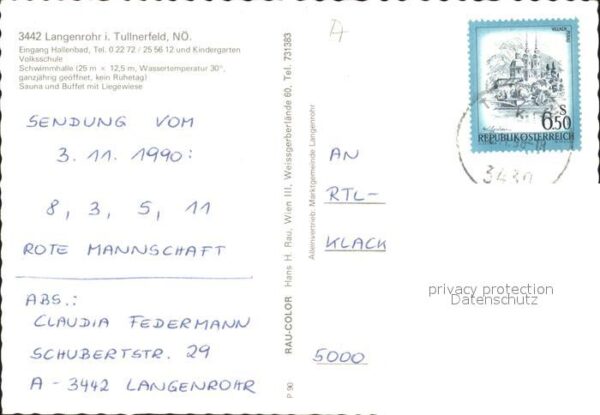 3442 Langenrohr i. Tullnerfeld, NÖ.
Eingang Hallenbad, Tel. 0 22 72 / 25 56 12 und Kindergarten
Volksschule
Schwimmhalle (25 m × 12,5 m, Wassertemperatur 30°,
ganzjährig geöffnet, kein Ruhetag)
Sauna und Buffet mit Liegewiese
SENDUNG VOM
3. 11. 1990:
8, 3, 5, 11
ROTE MANNSCHAFT
ABS.:
CLAUDIA FEDERMANN
SCHUBERTSTR. 29
A - 3442 LANGENROHR
P 90
RAU-COLOR Hans H. Rau, Wien III, Weissgerberlände 60, Tel. 731383
Alleinvertrieb: Marktgemeinde Langenrohr
A
S
6.50
REPUBLIK ÖSTERREICH
AN
RTL-
KLACK
5000
privacy protection
Datenschutz